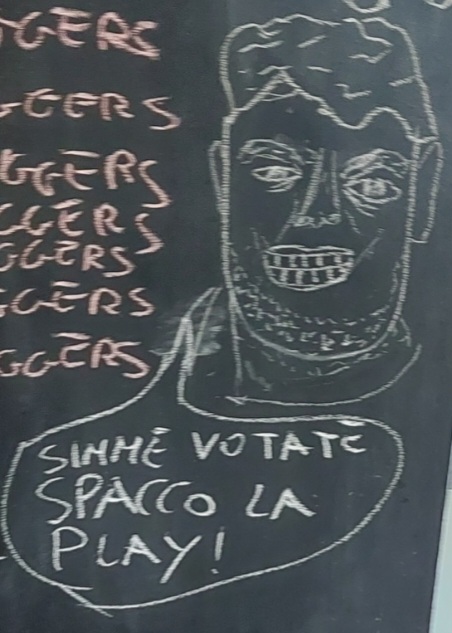 GGERS
GGERS
GGĒRS
GGĒRS
GGĒRS
GGĒRS
GGĒRS
SINMĒ VOTATĒ
SPACCO LA
PLAY!